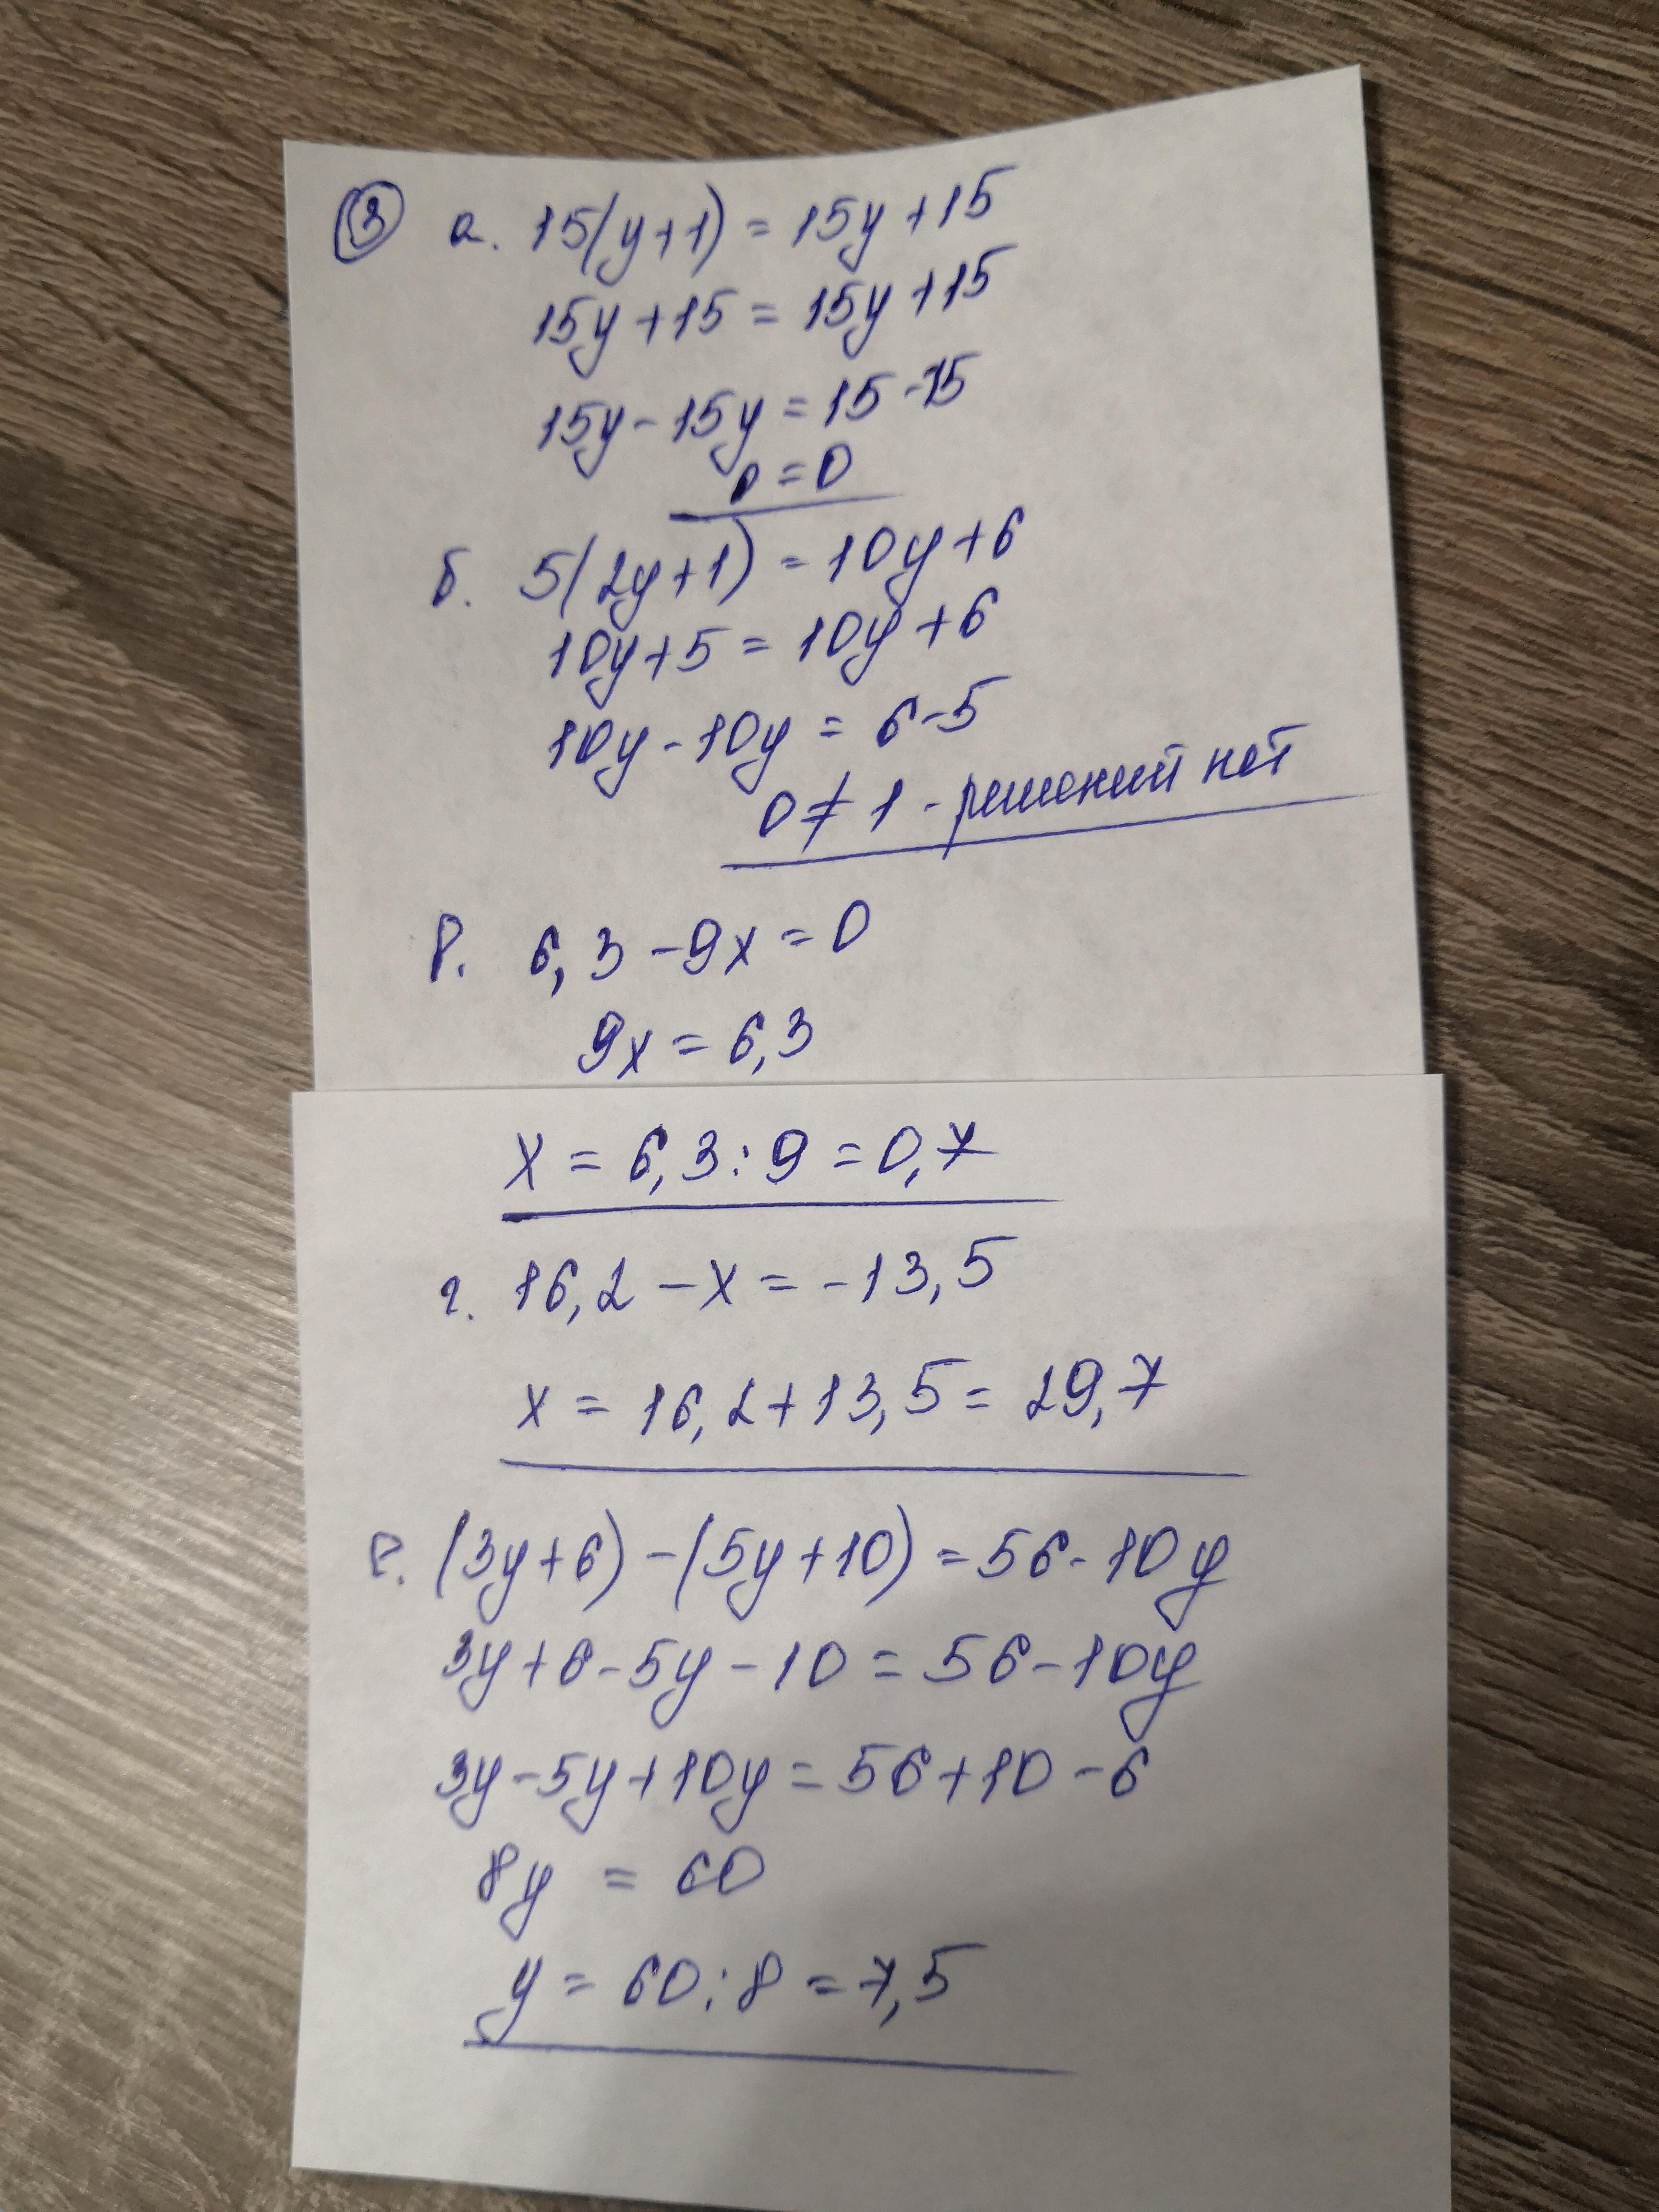 3 а. 15(y+1) = 15y+15
15y+15 = 15y+15
15y-15y = 15-15
0=0
б. 5(2y+1) = 10y+6
10y+5 = 10y+6
10y-10y = 6-5
0≠1 - решений нет
в. 6,3-9x=0
9x=6,3
x = 6,3:9=0,7
г. 16,2-x=-13,5
x = 16,2+13,5=29,7
е. (3y+6)-(5y+10)=56-10y
3y+6-5y-10=56-10y
3y-5y+10y=56+10-6
8y = 60
y=60:8=7,5